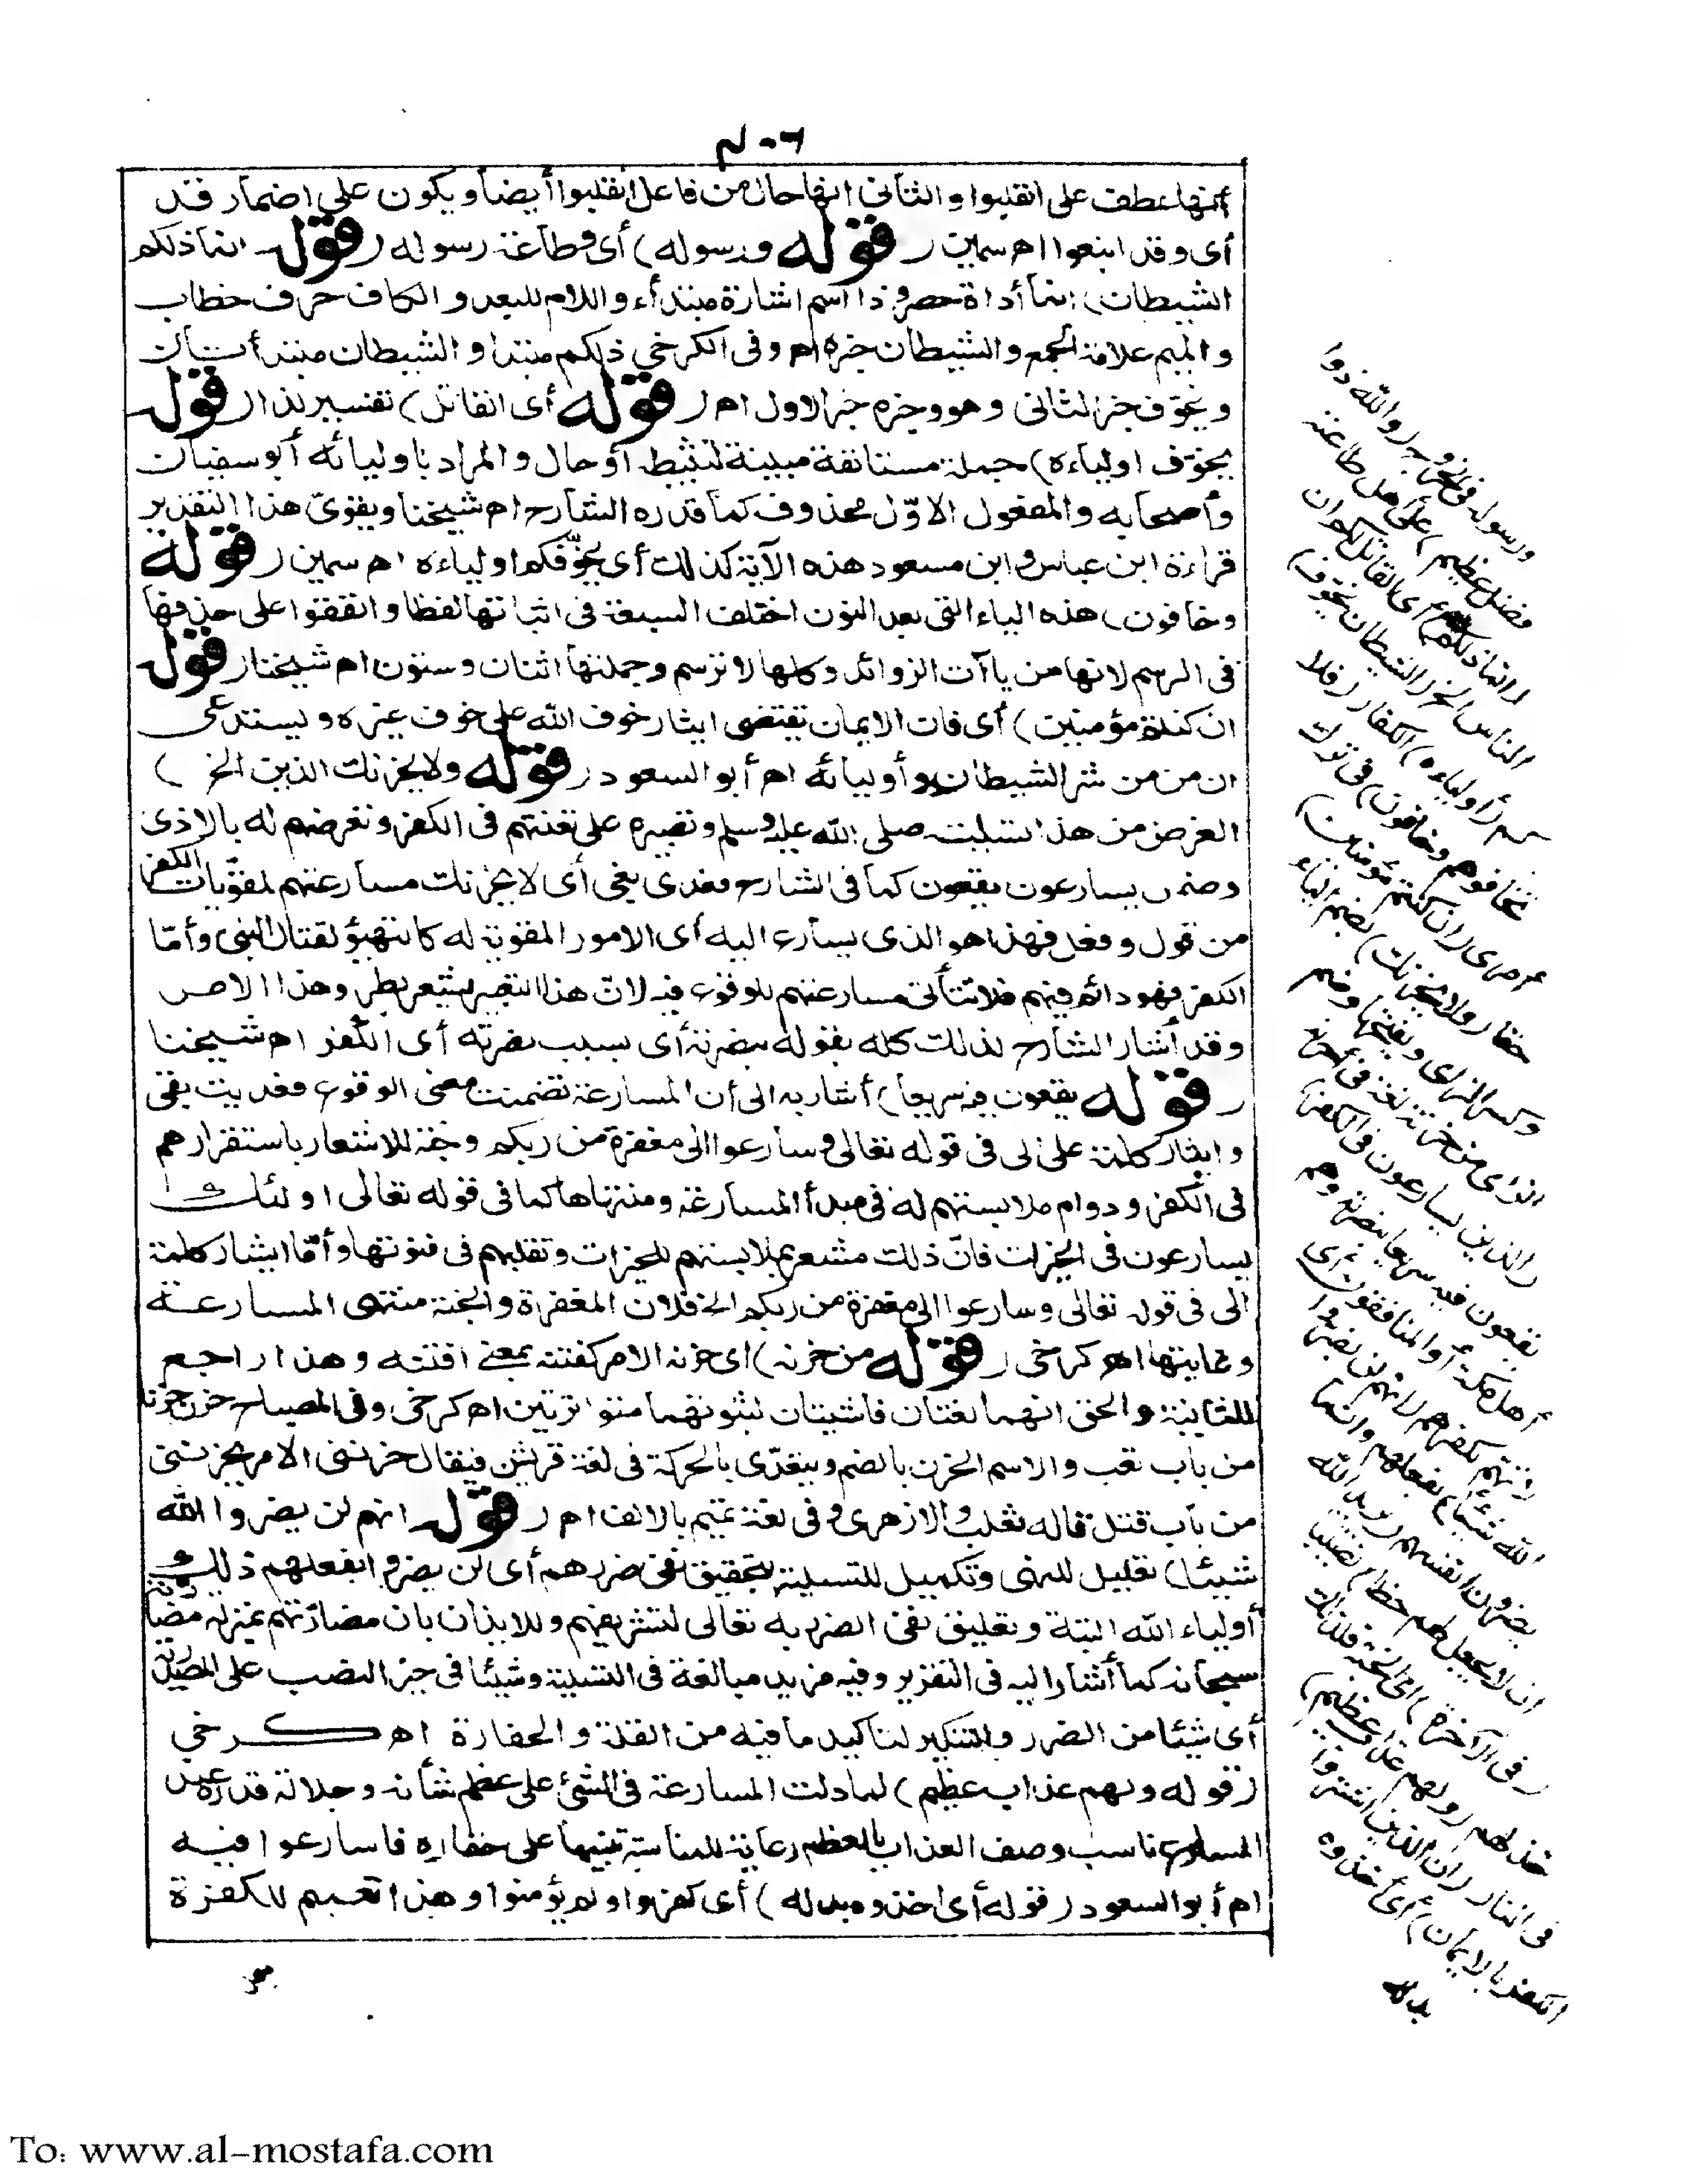 ٤٠٦
أنها عطف على انقلبوا والثانى انها حال من فاعل انقلبوا أيضا ويكون على اضمار قد
أى وقد اتبعوا اه سمين (قوله ورسوله) أى وطاعة رسوله (قوله انما ذلكم
الشيطان) انما أداة حصر وذا اسم اشارة مبتدأ واللام للبعد والكاف حرف خطاب
والميم علامة الجمع والشيطان خبره اه وفى الكرخى ذلكم مبتدا والشيطان مبتدأ ثان
ويخوف خبر الثانى وهو وخبره خبر الاول اه (قوله أى القائل) تفسير لذا (قوله
يخوّف اولياءه) جملة مستانفة مبينة لتثبيطه أو حال والمراد باوليائه أبو سفيان
وأصحابه والمفعول الاوّل محذوف كما قدره الشارح اه شيخنا ويقوىّ هذا التقدير
قراءة ابن عباس وابن مسعود هذه الآية كذلك أى يخوّفكم اولياءه اه سمين (قوله
وخافون) هذه الياء التى بعد النون اختلف السبعة فى اثباتها لفظا واتفقوا على حذفها
فى الرسم لانها من ياآت الزوائد وكلها لا ترسم وجملتها اثنان وستون اه شيخنا (قوله
ان كنتم مؤمنين) أى فان الايمان يقتضى ايثار خوف الله على خوف غيره ويستدعى
الامن من شر الشيطان وأوليائه اه أبو السعود (قوله ولا يحزنك الذين الخ )
الغرض من هذا تسليته صلى الله عليه وسلم وتصبيره على تعنتهم فى الكفر وتعرضهم له بالاذى
وضمن يسارعون يقعون كما فى الشارح فعدى بفى أى لا يحزنك مسارعتهم لمقوّيات الكفر
من قول وفعل فهذا هو الذى يسارع اليه أى الامور المقوية له كالتهيؤ لقتال النبى وأمّا
الكفر فهو دائم فيهم فلا تتأتى مسارعتهم للوقوع فيه لانّ هذا التعبير يشعر بطرو هذا الامر
وقد أشار الشارح لذلك كله بقوله بنصرته أى بسبب نصرته أى الكفر اه شيخنا
(قوله يقعون فيه سريعا) أشار به الى أن المسارعة تضمنت معنى الوقوع فعديت بفى
وايثار كلمة على الى فى قوله تعالى وسارعوا الى مغفرة من ربكم وجنة للاشعار باستقرارهم
فى الكفر ودوام ملابستهم له فى مبدأ المسارعة ومنتهاها كما فى قوله تعالى اولئك
يسارعون فى الخيرات فانّ ذلك مشعر بملابستهم للخيرات وتقلبهم فى فنونها وأمّا ايثار كلمة
الى فى قوله تعالى وسارعوا الى مغفرة من ربكم الخ فلان المغفرة والجنة منتهى المسارعة
وغايتها اهـ كرخى (قوله من حزنه) اى حزنه الامر كفتنه بمعنى افتنه وهذا راجع
للثانية والحق انهما لغتان فاشيتان لثبوتهما متواترتين اه كرخى وفى المصباح حزن حزنا
من باب تعب والاسم الحزن بالضم ويتعدّى بالحركة فى لغة قريش فيقال حزننى الامر يحزننى
من باب قتل قاله ثعلب والازهرى وفى لغة تميم بالالف اه (قوله انهم لن يضروا الله
شيئا) تعليل للنهى وتكميل للتسلية بتحقيق نفى ضررهم أى لن يضروا بفعلهم ذلك
أولياء الله البتة وتعليق نفى الضرر به تعالى لتشريفهم وللايذان بان مضارّتهم بمنزلة مضارّته
سبحانه كما أشار اليه فى التقرير وفيه مزيد مبالغة فى التسلية وشيئا فى حيز النصب على المصدرية
أى شيئا من الضرر والتنكير لتاكيد ما فيه من القلة والحقارة اهـ كرخى
(قوله ولهم عذاب عظيم) لما دلت المسارعة فى الشئ على عظم شأنه وجلالة قدره عند
المسارع ناسب وصف العذاب بالعظم رعاية للمناسبة تنبيها على حقارة ما سارعوا فيه
اه أبو السعود (قوله أى اخذوه بدله) أى كفروا ولم يؤمنوا وهذا تعميم للكفرة
ورسوله فى الخروج (والله ذو
فضل عظيم) على أهل طاعته
(انما ذلكم) أى القائل لكم ان
الناس الخ (الشيطان يخوّف)
كم (أولياءه) الكفار (فلا
تخافوهم وخافون) فى ترك
أمرى (ان كنتم مؤمنين)
حقا (ولا يحزنك) بضم الياء
وكسر الزاى وبفتحها وضم
الزاى من حزنه لغة فى أحزنه
(الذين يسارعون فى الكفر)
يقعون فيه سريعا بنصرته وهم
أهل مكة أو المنافقون أى
لا تهتم لكفرهم (انهم لن يضروا
الله شيئا) بفعلهم وانما
يضرون انفسهم (يريد الله
ان لا يجعل لهم حظا) نصيبا
(فى الآخرة) أى الجنة فلذلك
خذلهم (ولهم عذاب عظيم)
فى النار (ان الذين اشتروا
الكفر بالايمان) أى أخذوه
بدله
To: www.al-mostafa.com